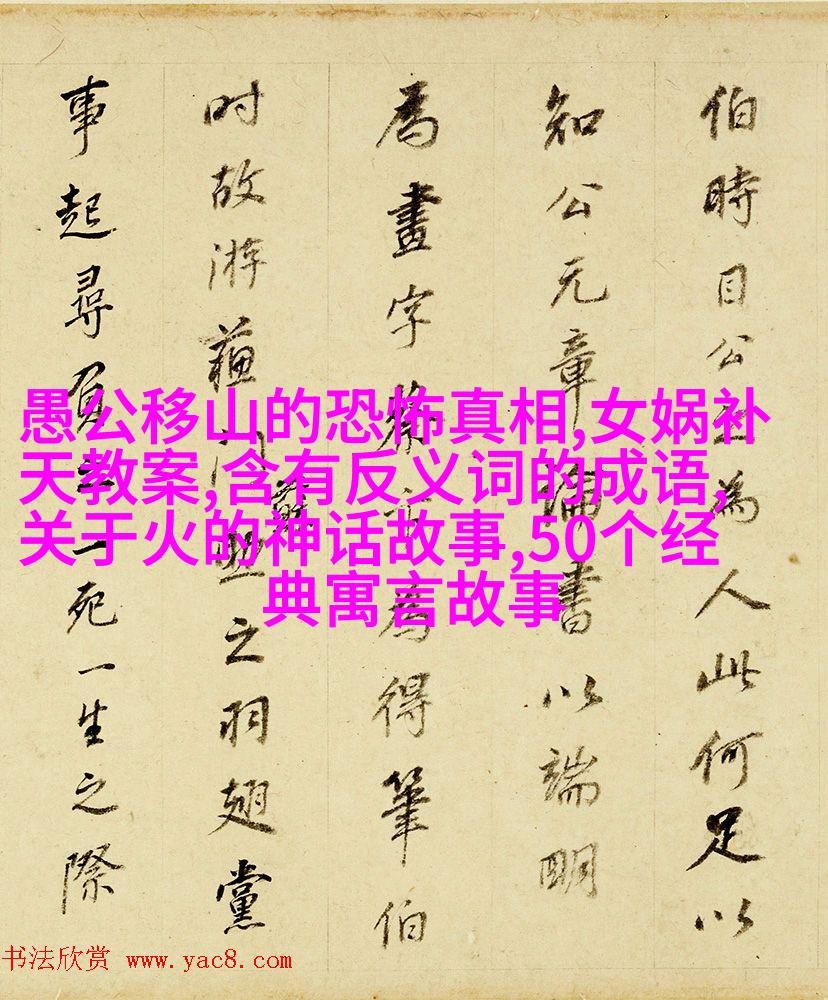 伯時目公為人此何足以
知公元章論書以端明
為畫字為得筆伯
时故游蘓门之羽翅黨
事起尋負一死一生之際
愚公移山的恐怖真相,女娲补
天教案,含有反义词的成语,
关于火的神话故事,50个经
典寓言故事
书法欣赏 www.yac8.com